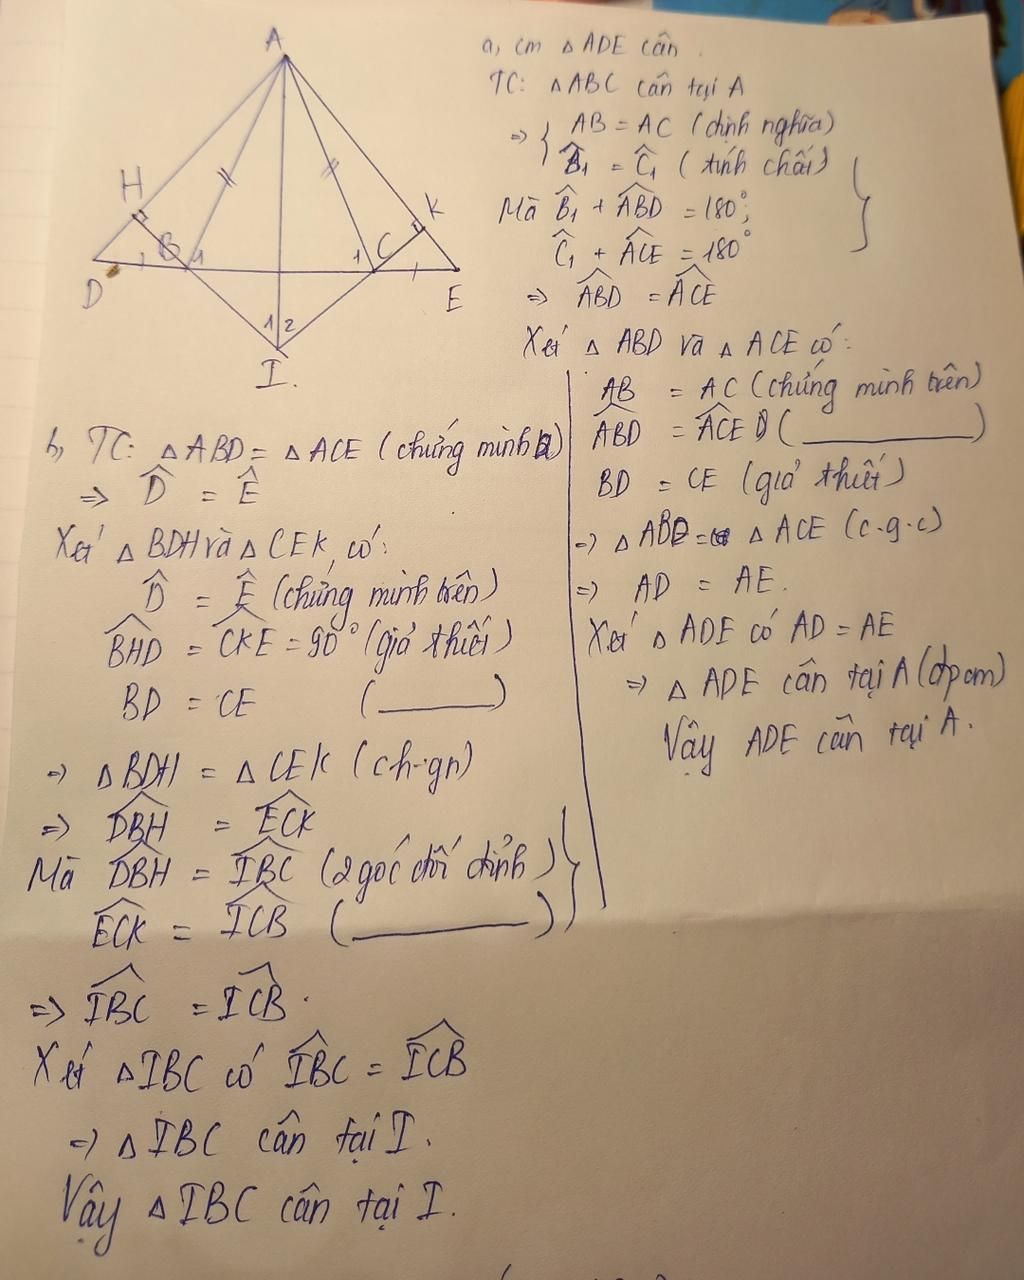 A
H
K
B
1
1
C
D
E
1 2
I.
a, cm △ ADE cân.
TC: △ ABC cân tại A
=> { AB = AC (định nghĩa)
B̂₁ = Ĉ₁ (tính chất)
Mà B̂₁ + ABD̂ = 180°;
Ĉ₁ + ACÊ = 180°
=> ABD̂ = ACÊ
Xét △ ABD và △ ACE có:
AB = AC (chứng minh trên)
ABD̂ = ACÊ (________)
BD = CE (giả thiết)
=> △ ABD = △ ACE (c.g.c)
=> AD = AE.
Xét △ ADE có AD = AE
=> △ ADE cân tại A (đpcm)
Vậy ADE cân tại A.
b, TC: △ ABD = △ ACE (chứng minh a)
=> D̂ = Ê
Xét △ BDH và △ CEK có:
D̂ = Ê (chứng minh trên)
BHD̂ = CKÊ = 90° (giả thiết)
BD = CE (________)
=> △ BDH = △ CEK (ch-gn)
=> DBĤ = ECK̂
Mà DBĤ = IBĈ (2 góc đối đỉnh)
ECK̂ = ICB̂ (________)
=> IBĈ = ICB̂.
Xét △ IBC có IBĈ = ICB̂
=> △ IBC cân tại I.
Vậy △ IBC cân tại I.